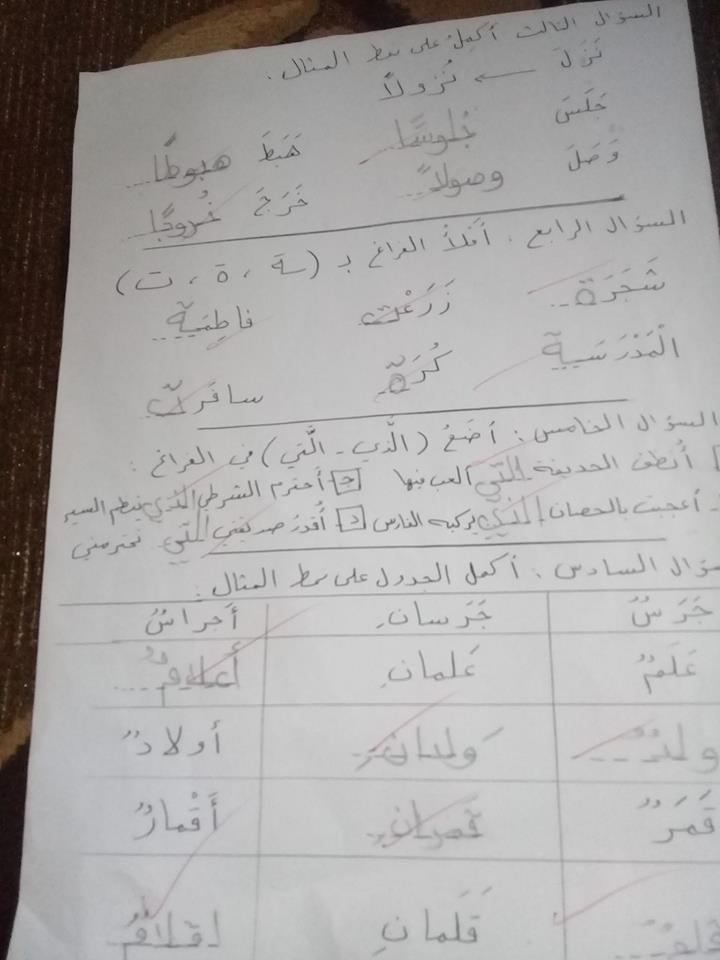 السؤال الثالث أكمل على نمط المثال :
نَزَلَ ← نُزولاً
جَلَسَ جُلوسًا هَبَطَ هبوطًا
وَصَلَ وصولاً خَرَجَ خُروجًا
السؤال الرابع : أَملأ الفراغ بـ (ـة ، ة ، ت)
شَجَرَة زَرَعْت فاطِمَـة
الْمَدْرَسَـة كُرَة سافَرت
السؤال الخامس : أَضَعُ (الَّذي - الَّتي) في الفراغ :
أُنظف الحديقة التي ألعب فيها أحترم الشرطي الذي ينظم السير
أعجبت بالحصان الذي يركبه الفارس أُقدّر صديقتي التي تحترمني
سؤال السادس : أكمل الجدول على نمط المثال :
جَرَسٌ جَرَسانِ أجراسٌ
عَلَمٌ عَلمانِ أعلامٌ
ولدٌ وَلدان أولادٌ
قَمَرٌ قمران أَقْمارٌ
قلمٌ قَلَمانِ اقلامٌ